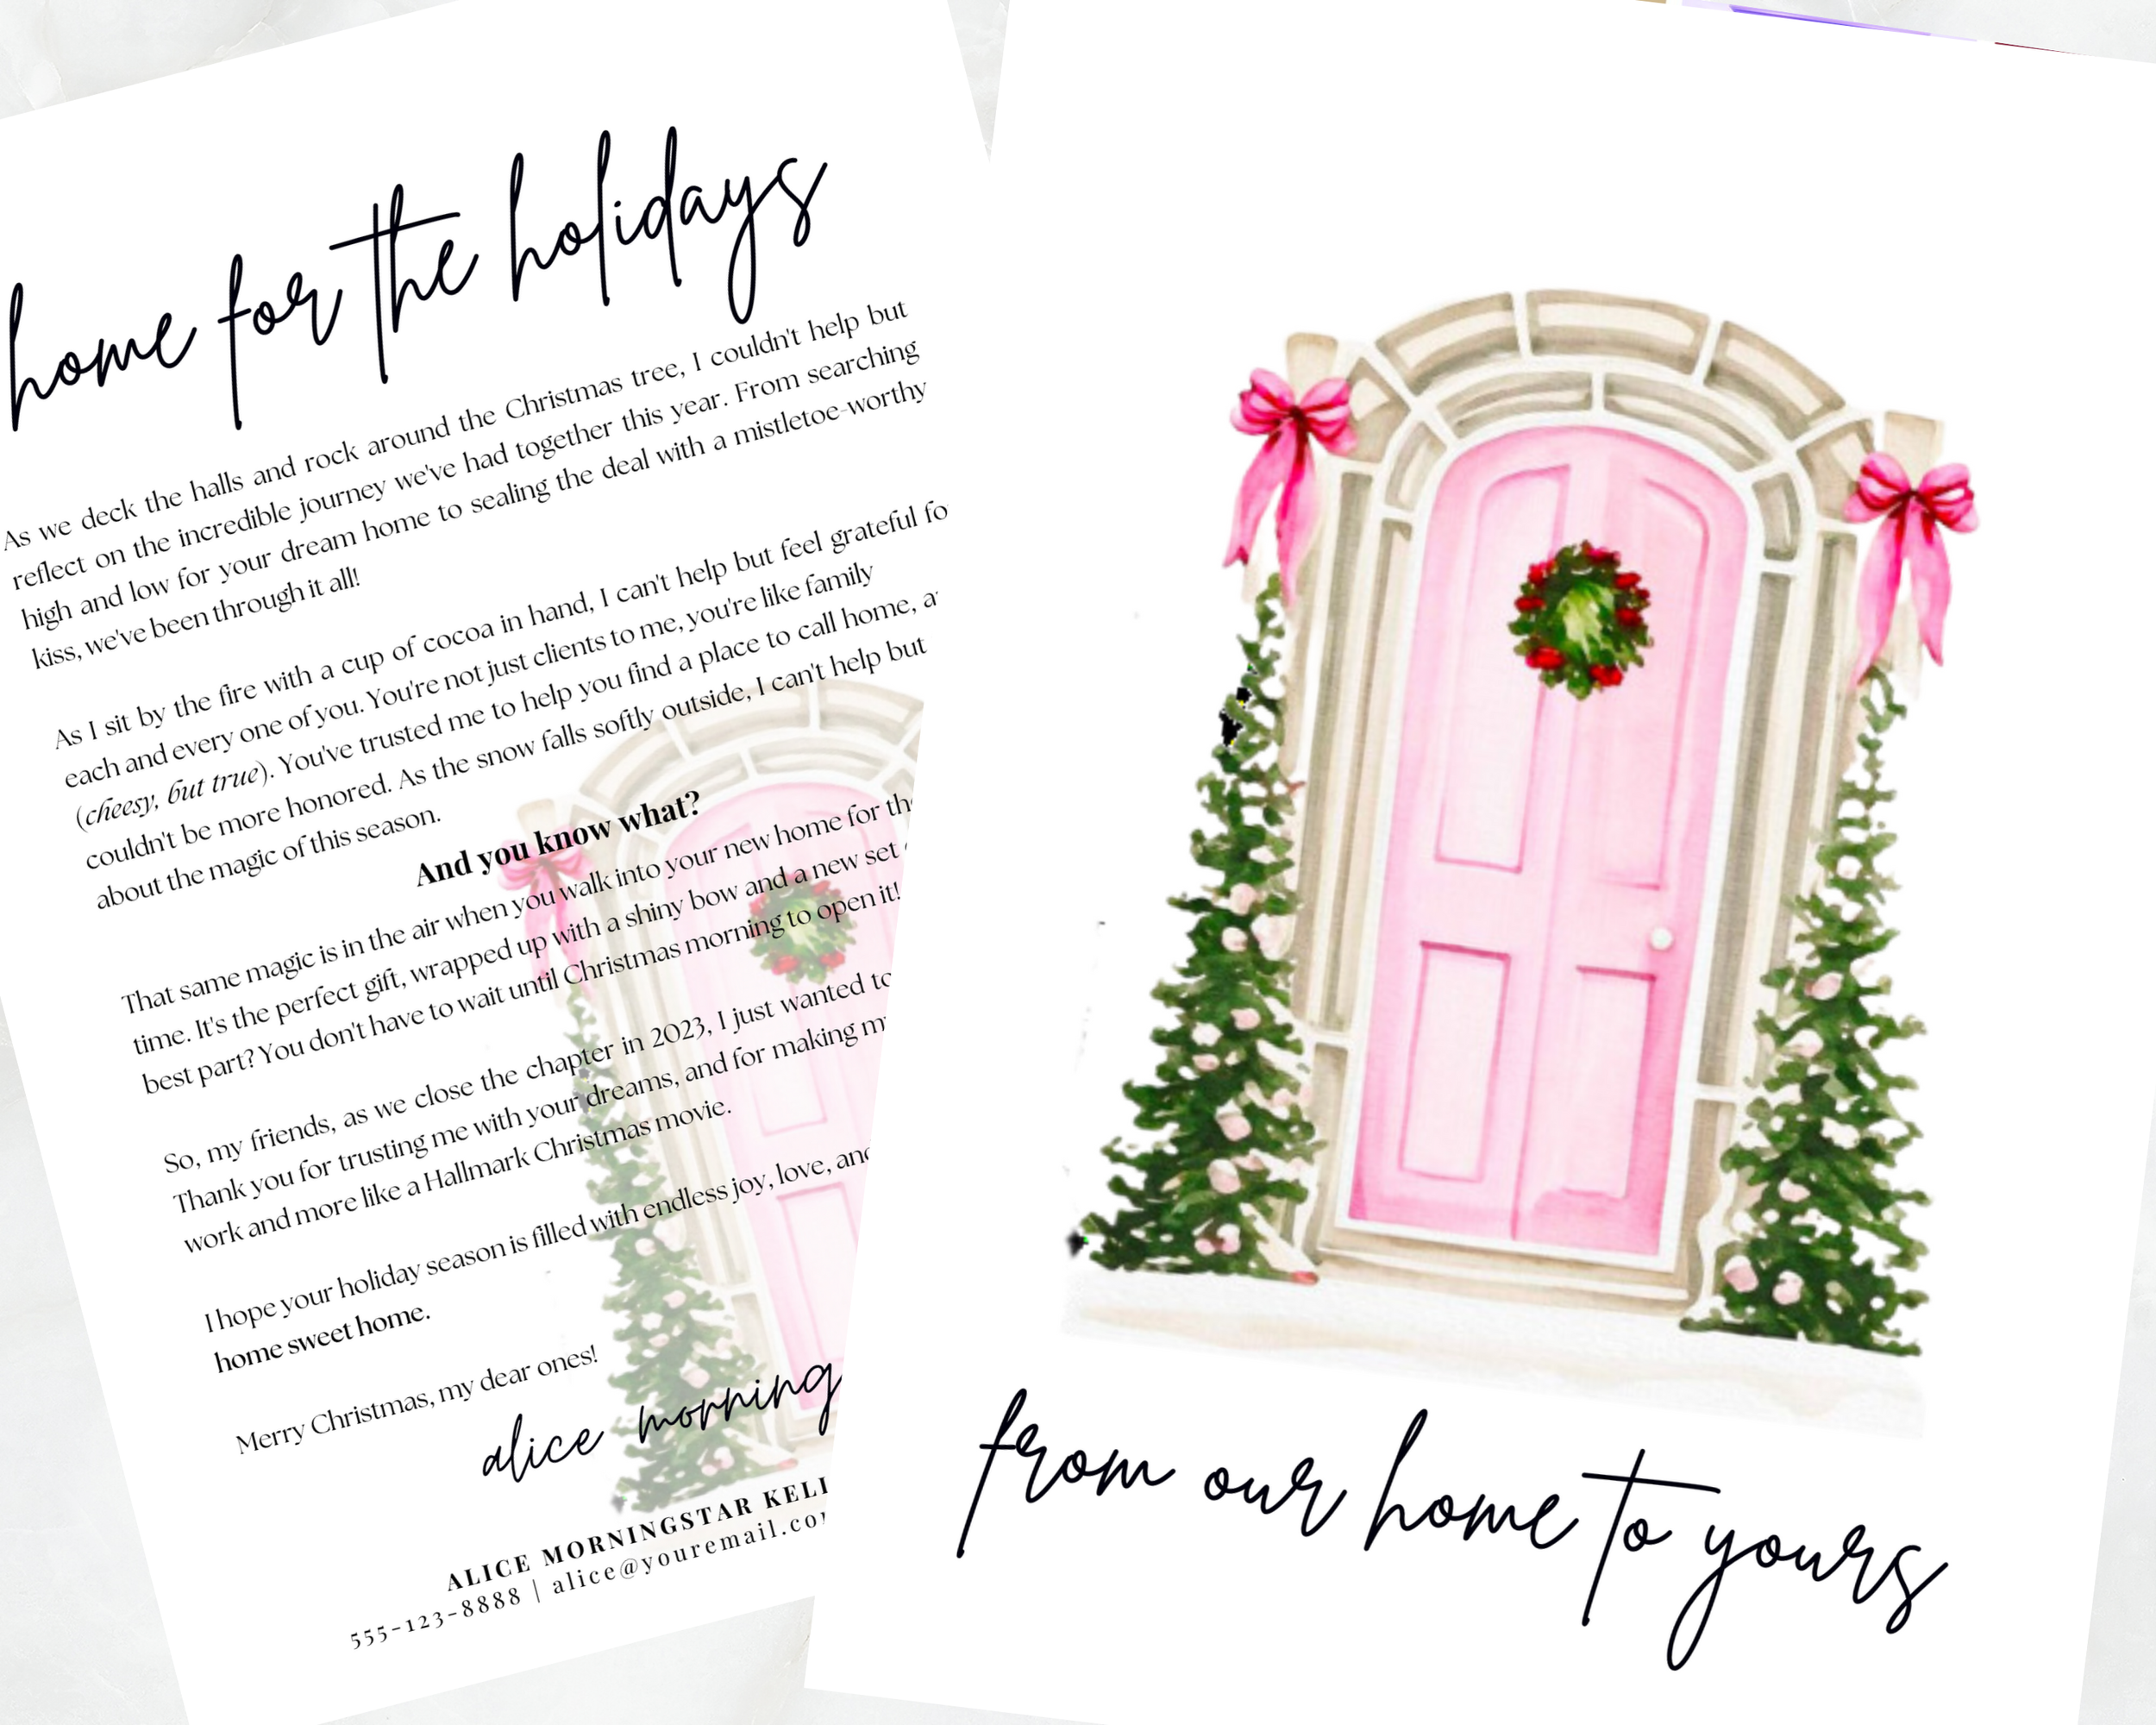 home for the holidays
As we deck the halls and rock around the Christmas tree, I couldn't help but
reflect on the incredible journey we've had together this year. From searching
high and low for your dream home to sealing the deal with a mistletoe-worthy
kiss, we've been through it all!
As I sit by the fire with a cup of cocoa in hand, I can't help but feel grateful fo
each and every one of you. You're not just clients to me, you're like family
(cheesy, but true). You've trusted me to help you find a place to call home, a
couldn't be more honored. As the snow falls softly outside, I can't help but
about the magic of this season.
And you know what?
That same magic is in the air when you walk into your new home for th
time. It's the perfect gift, wrapped up with a shiny bow and a new set
best part? You don't have to wait until Christmas morning to open it!
So, my friends, as we close the chapter in 2023, I just wanted to
Thank you for trusting me with your dreams, and for making m
work and more like a Hallmark Christmas movie.
I hope your holiday season is filled with endless joy, love, and
home sweet home.
Merry Christmas, my dear ones!
alice morning
ALICE MORNINGSTAR KELL
555-123-8888 | alice@youremail.co
from our home to yours